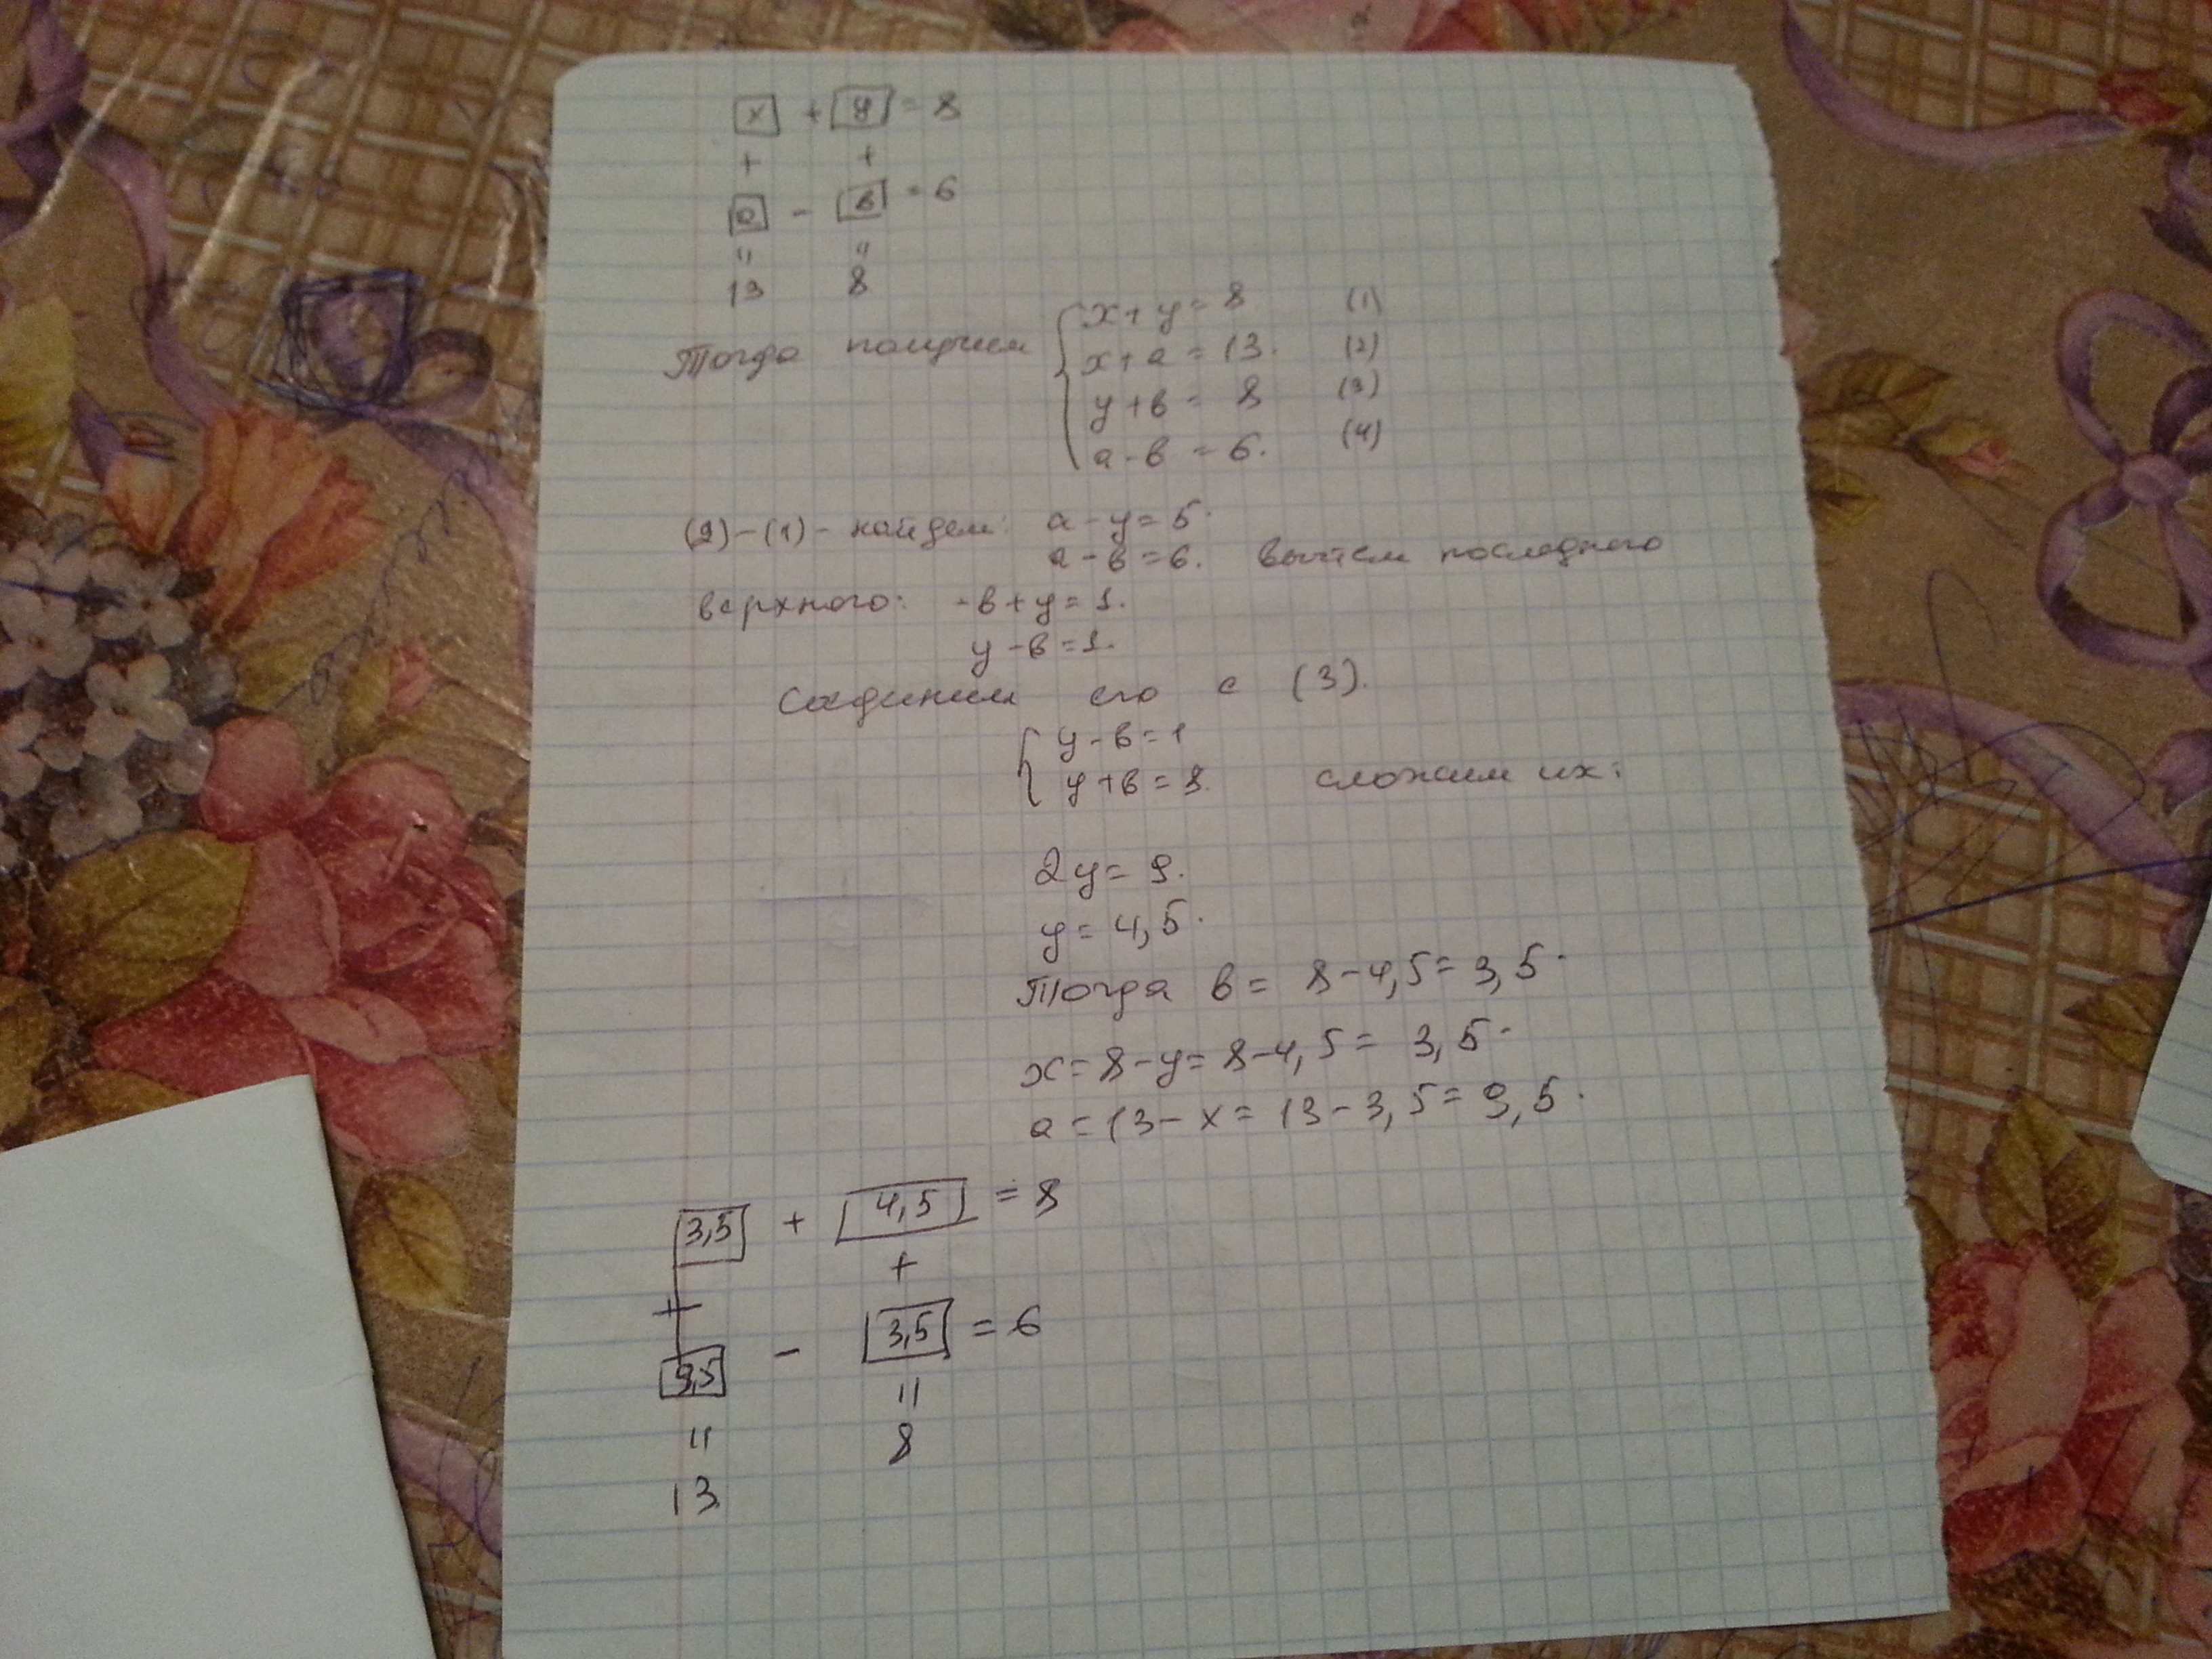 x + y = 8
+ +
a - в = 6
" "
13 8
Тогда получим
x + y = 8 (1)
x + a = 13. (2)
y + в = 8 (3)
a - в = 6. (4)
(2) - (1) - найдем: a - y = 5.
a - в = 6. Вычтем последнего
верхного: -в + y = 1.
y - в = 1.
Соединим его с (3).
y - в = 1
y + в = 8. сложим их:
2y = 9.
y = 4,5.
Тогда в = 8 - 4,5 = 3,5.
x = 8 - y = 8 - 4,5 = 3,5.
a = 13 - x = 13 - 3,5 = 9,5.
3,5 + 4,5 = 8
+ +
9,5 - 3,5 = 6
" "
13 8